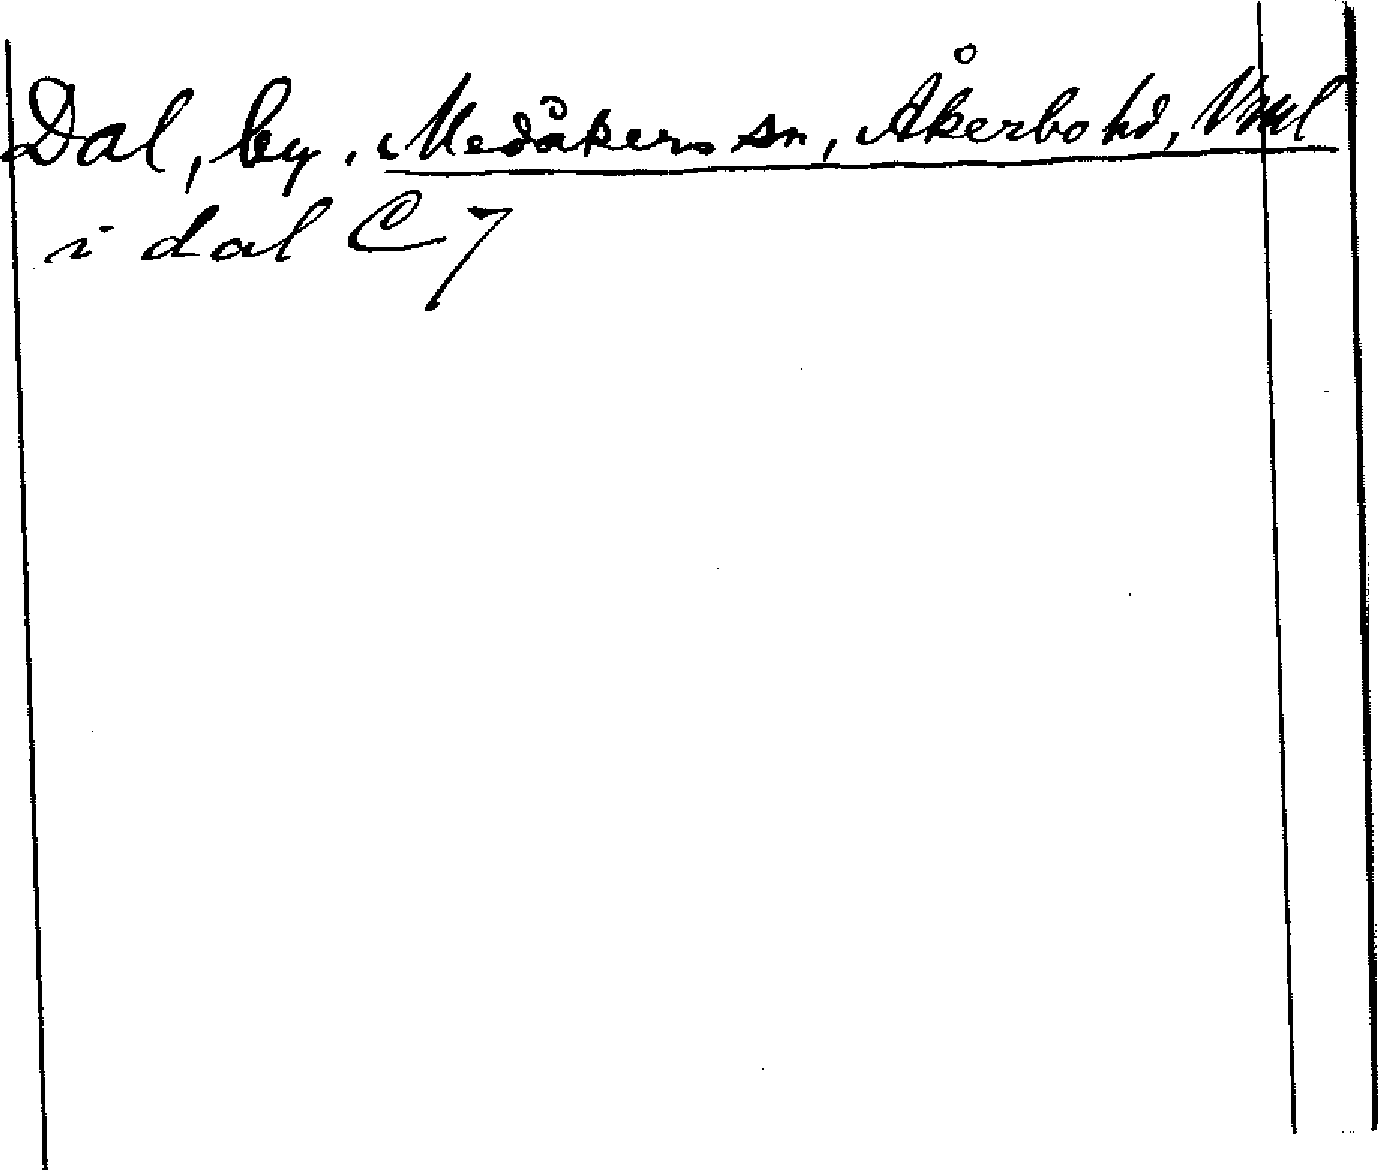 Dal, by. Medåkers sn, Åkerbo hd, Vml
i dal C 7